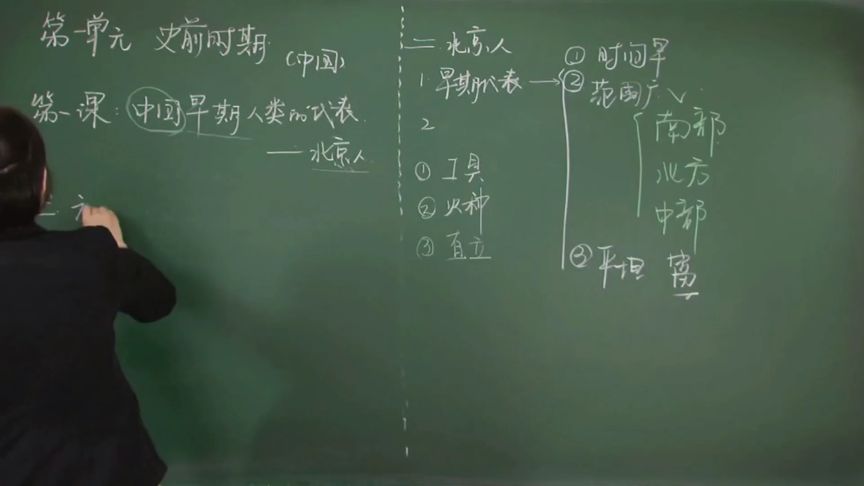 第一单元 史前时期
(中国)
第一课：中国早期人类的代表
——北京人
一.
二 北京人
1. 早期代表 →
2
① 工具
② 火种
③ 直立
① 时间早
② 范围广
南部
北方
中部
③ 平坦